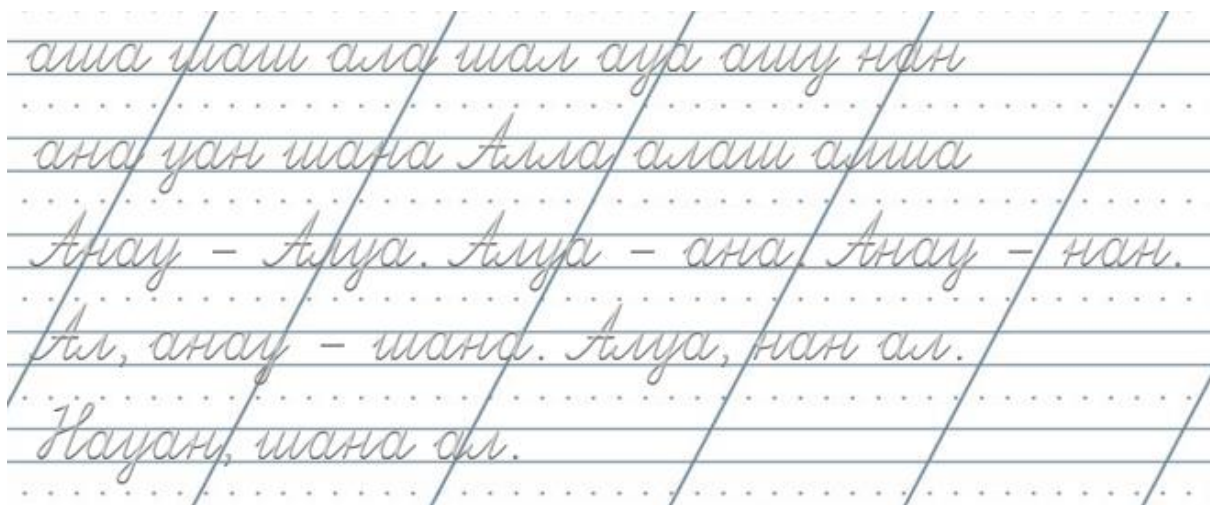 аша шаш ала шал ауа ашу нан
ана уан шана Алла алаш алша
Анау – Алуа. Алуа – ана. Анау – нан.
Ал, анау – шана. Алуа, нан ал.
Науан, шана ал.